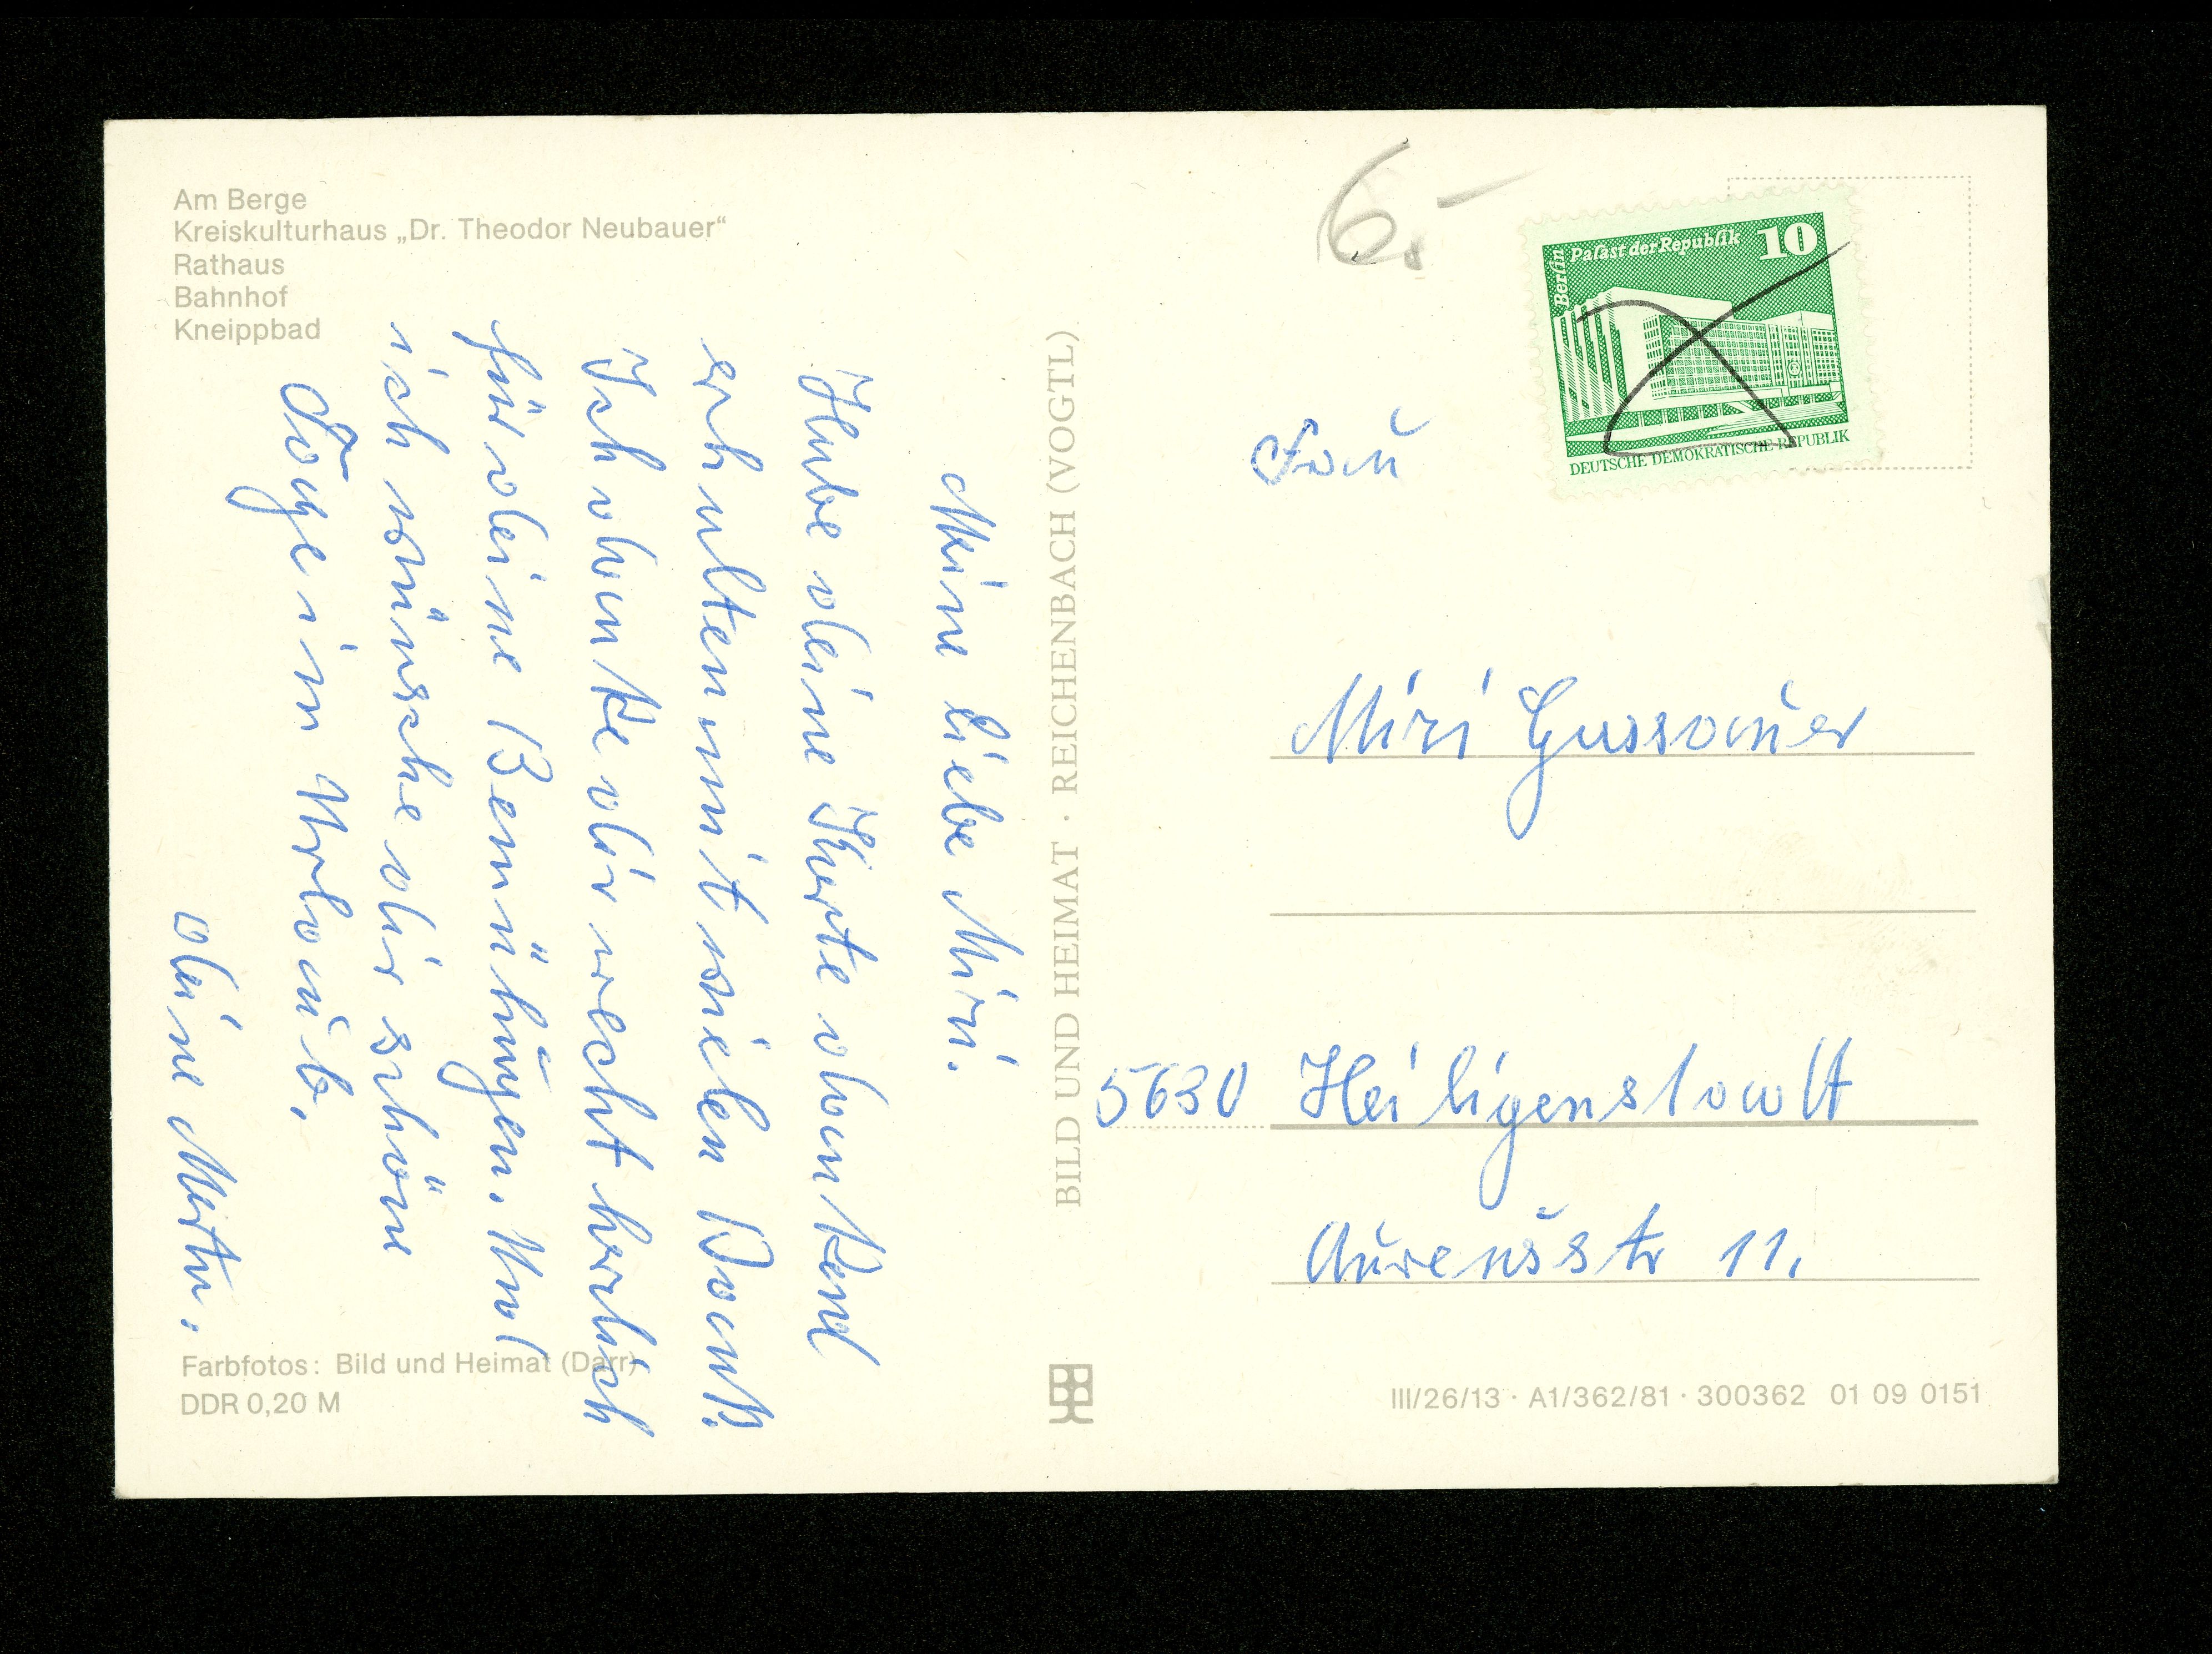 Am Berge
Kreiskulturhaus „Dr. Theodor Neubauer“
Rathaus
Bahnhof
Kneippbad
Meine liebe Miri.
Habe deine Karte dankend
erhalten mit vielen Dank.
Ich danke dir recht herzlich
für deine Bemühungen. Und
ich wünsche dir schöne
Tage im Urlaub.
deine Merta.
Farbfotos: Bild und Heimat (Darr)
DDR 0,20 M
BILD UND HEIMAT · REICHENBACH (VOGTL)
6.-
Berlin
Palast der Republik 10
DEUTSCHE DEMOKRATISCHE REPUBLIK
Frau
Miri Gussauer
5630 Heiligenstadt
11.
III/26/13 · A1/362/81 · 300362 01 09 0151